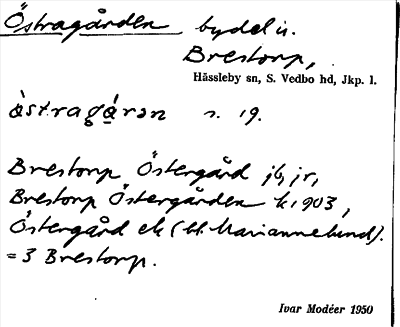 Östragården bydel i.
Brestorp,
Hässleby sn, S. Vedbo hd, Jkp. l.
s. 19.
Brestorp Östergård jb, jr,
Brestorp Östergården k 1903,
Östergård ek (bl. Mariannelund).
= 3 Brestorp.
Ivar Modéer 1950